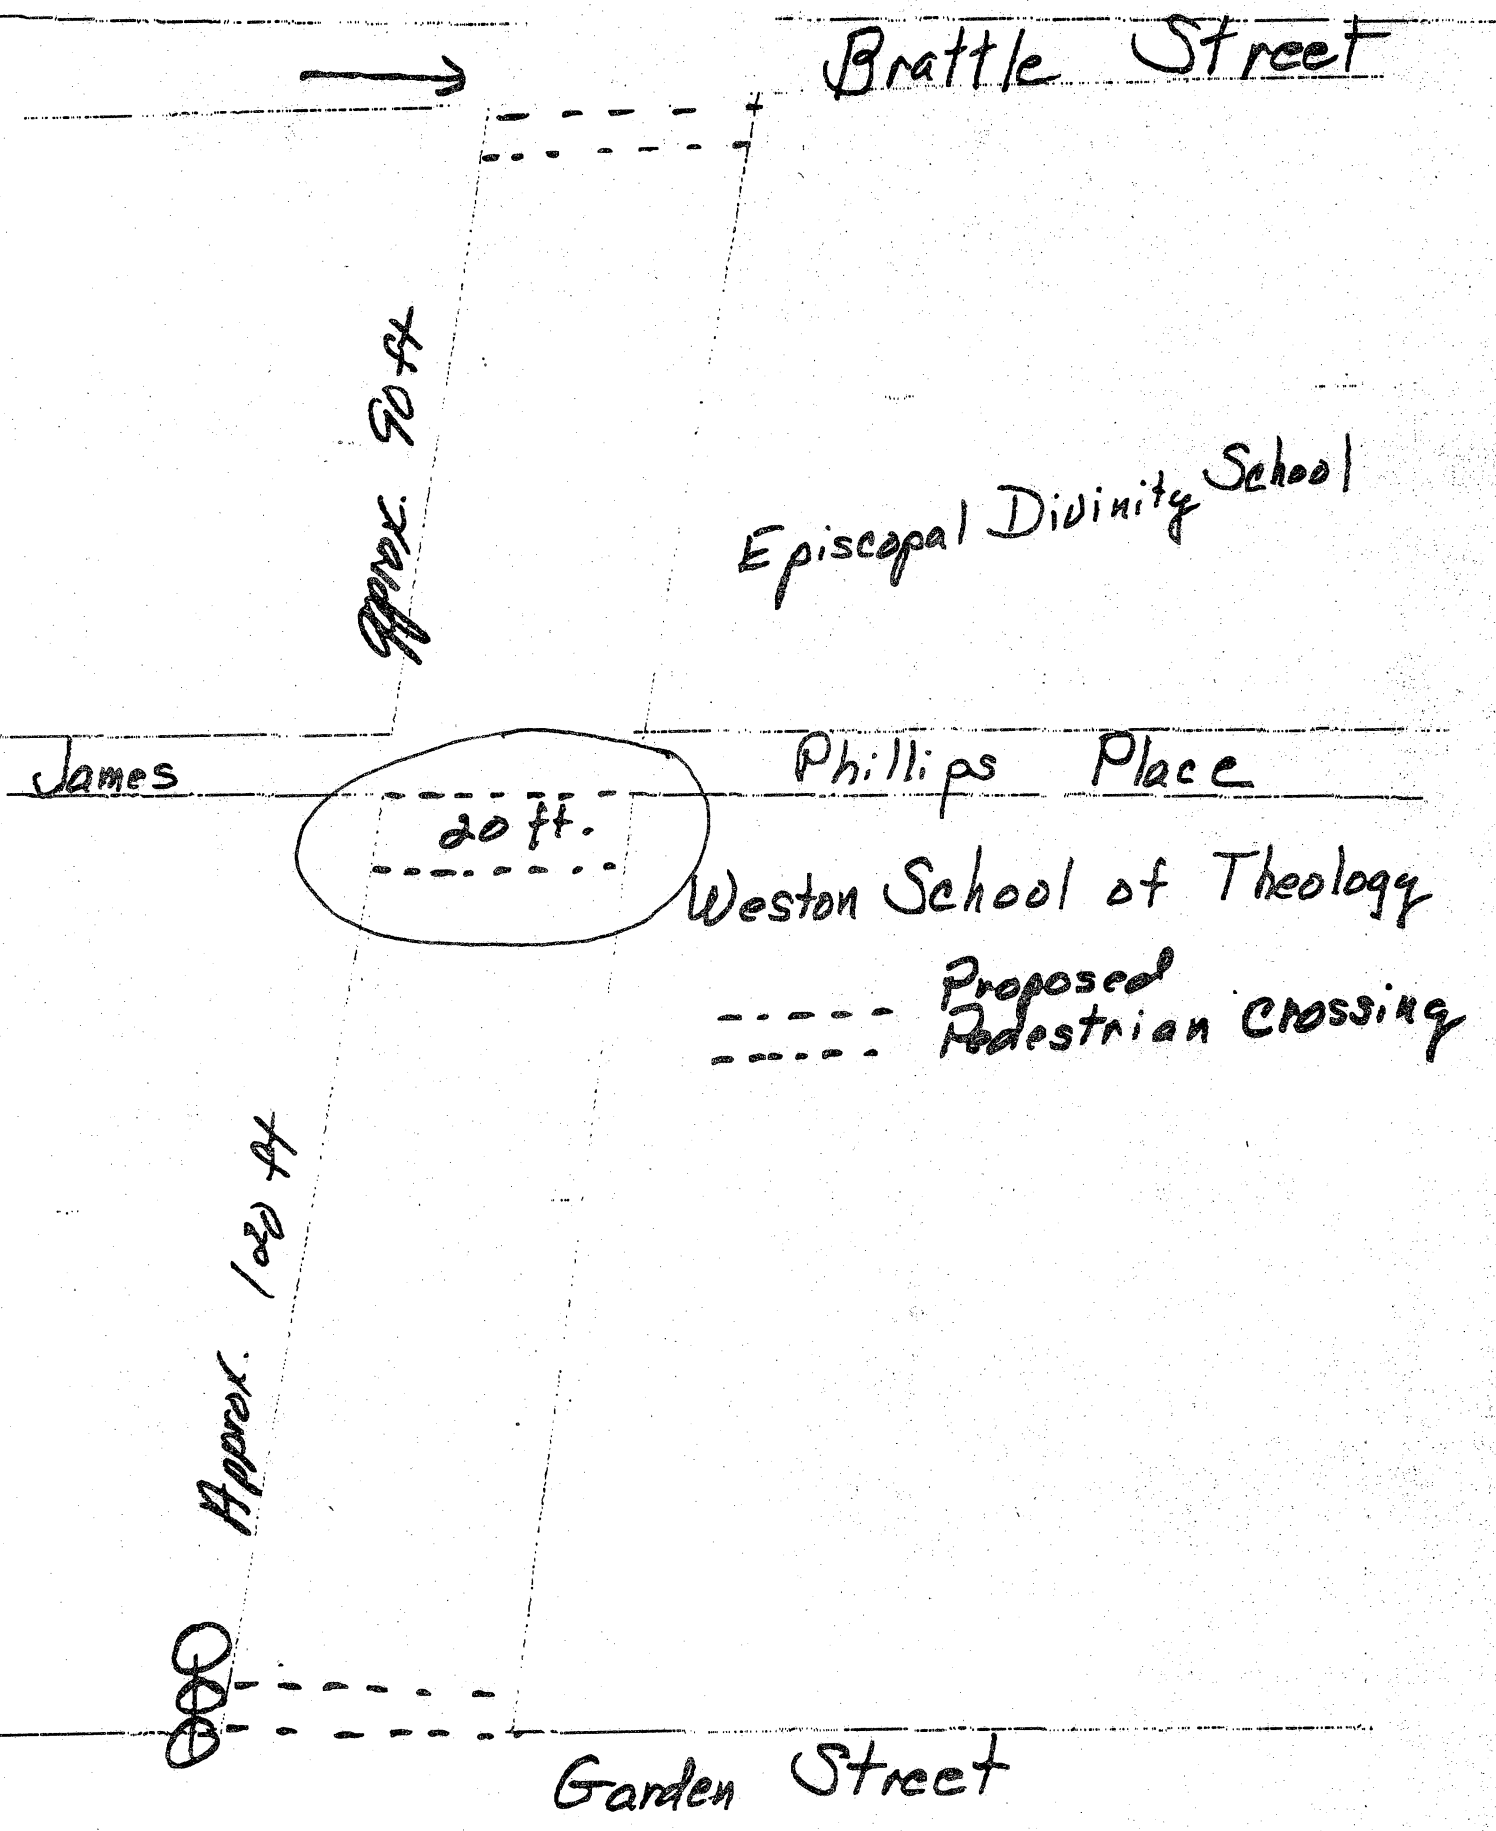 Brattle Street
Approx. 90 ft
Episcopal Divinity School
James
Phillips Place
20 ft.
Weston School of Theology
Proposed
Pedestrian Crossing
Approx. 120 ft
Garden Street